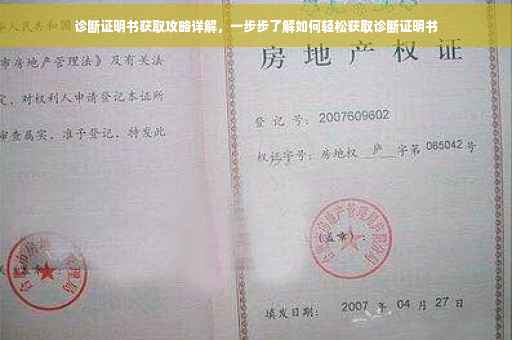 诊断证明书获取攻略详解，一步步了解如何轻松获取诊断证明书
人民共和国
市房地产管理法》及有关法
定，对权利人申请登记本证所
审查属实，准予登记，特发此
房地产权证
登记号：2007609602
权证字号：房地权 庐 字第 085042 号
(盖章)：
填发日期：2007 年 04 月 27 日